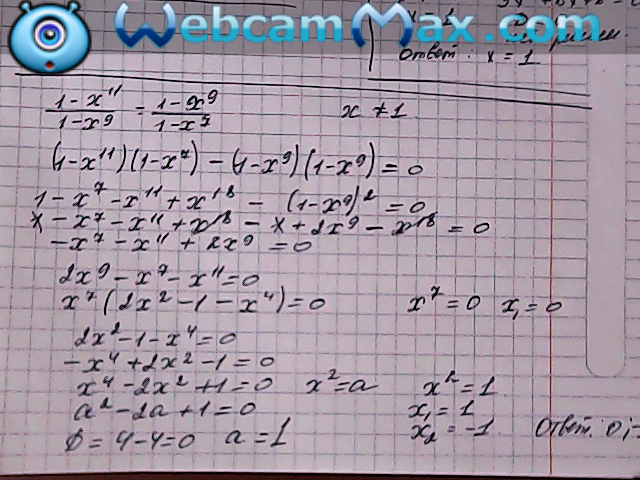 WebcamMax.com
Ответ: x = 1
(1-x¹¹)/(1-x⁹) = (1-x⁹)/(1-x⁷)    x ≠ 1
(1-x¹¹)(1-x⁷) - (1-x⁹)(1-x⁹) = 0
1 - x⁷ - x¹¹ + x¹⁸ - (1-x⁹)² = 0
1 - x⁷ - x¹¹ + x¹⁸ - 1 + 2x⁹ - x¹⁸ = 0
-x⁷ - x¹¹ + 2x⁹ = 0
2x⁹ - x⁷ - x¹¹ = 0
x⁷(2x² - 1 - x⁴) = 0    x⁷ = 0    x₁ = 0
2x² - 1 - x⁴ = 0
-x⁴ + 2x² - 1 = 0
x⁴ - 2x² + 1 = 0    x² = a    x² = 1
a² - 2a + 1 = 0    x₁ = 1
D = 4 - 4 = 0    a = 1    x₂ = -1    Ответ: 0; -